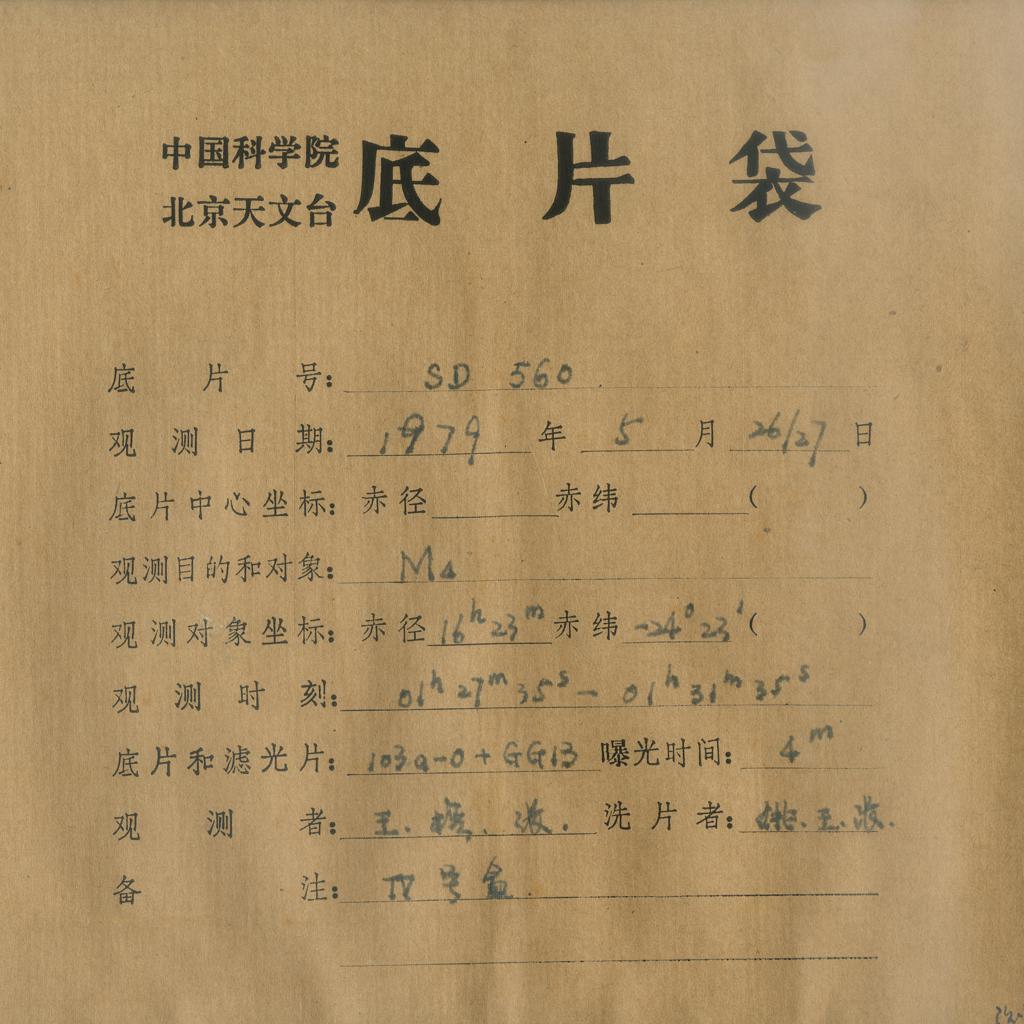 中国科学院
北京天文台
底片袋
底片号: SD 560
观测日期: 1979 年 5 月 26/27 日
底片中心坐标: 赤径 赤纬 ( )
观测目的和对象: M4
观测对象坐标: 赤径 16h23m 赤纬 -24°23' ( )
观测时刻: 01h 27m 35s — 01h 31m 35s
底片和滤光片: 103a-O + GG13 曝光时间: 4m
观测者: 王. 洗片者: 姚. 王.
备注: IV号盒.